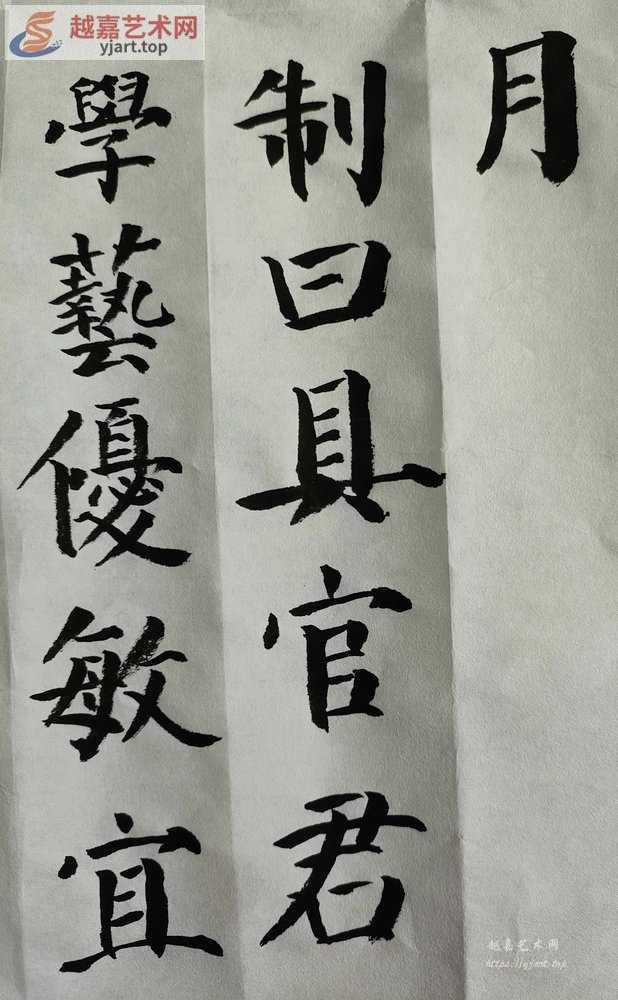 越嘉艺术网
yjart.top
月
制曰具官君
學藝優敏宜
越嘉艺术网
https://yjart.top